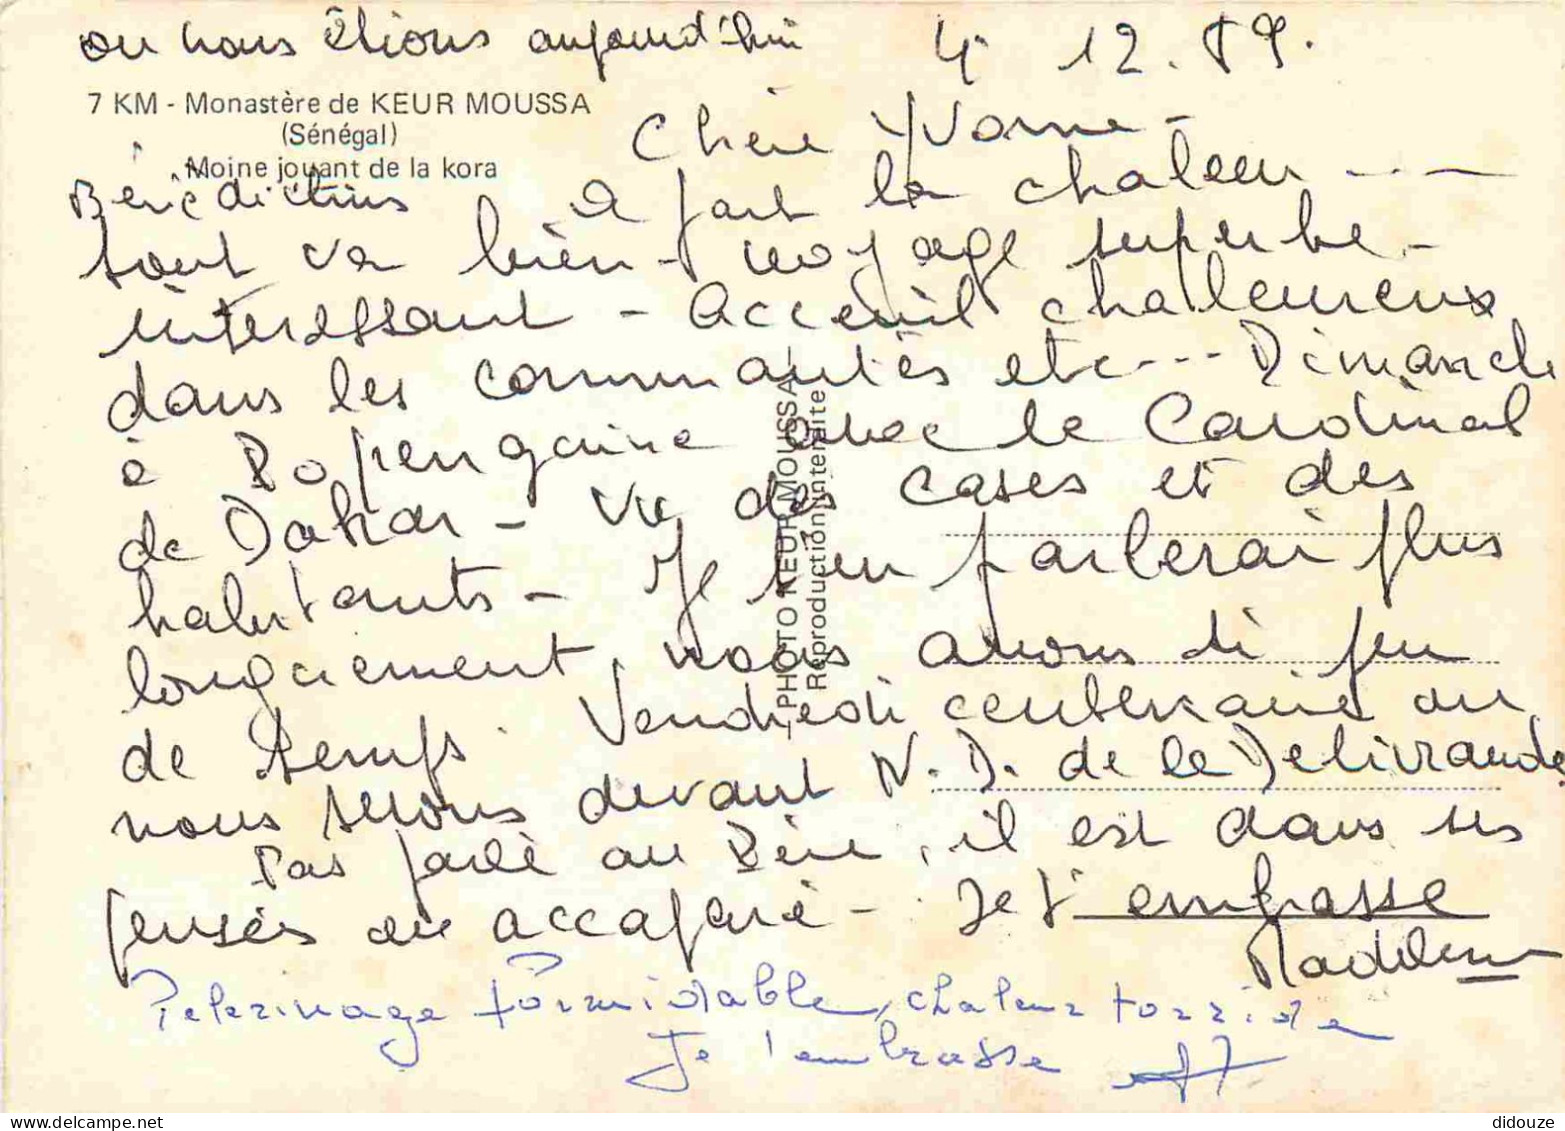 ou nous étions aujourd'hui 4. 12. 89.
7 KM - Monastère de KEUR MOUSSA
(Sénégal)
Moine jouant de la kora
Bénédictins
Chère Yvonne -
Il fait la chaleur ---
tout va bien - voyage superbe -
interessant - Acceuil chaleureux
dans les communautés etc --- Dimanche
à Popenguine avec le Cardinal
de Dakar - Vu des cases et des
habitants - Je t'en parlerai plus
longuement, nous avons si peu
de temps. Vendredi centenaire ou
nous serons devant N. D. de la Delivrande
Pas parlé au Père, il est dans ses
pensées ou accaparé - Je t'embrasse
Madeleine
Pelerinage formidable, chaleur torride
Je t'embrasse
PHOTO KEUR MOUSSA
Reproduction interdite
didouze